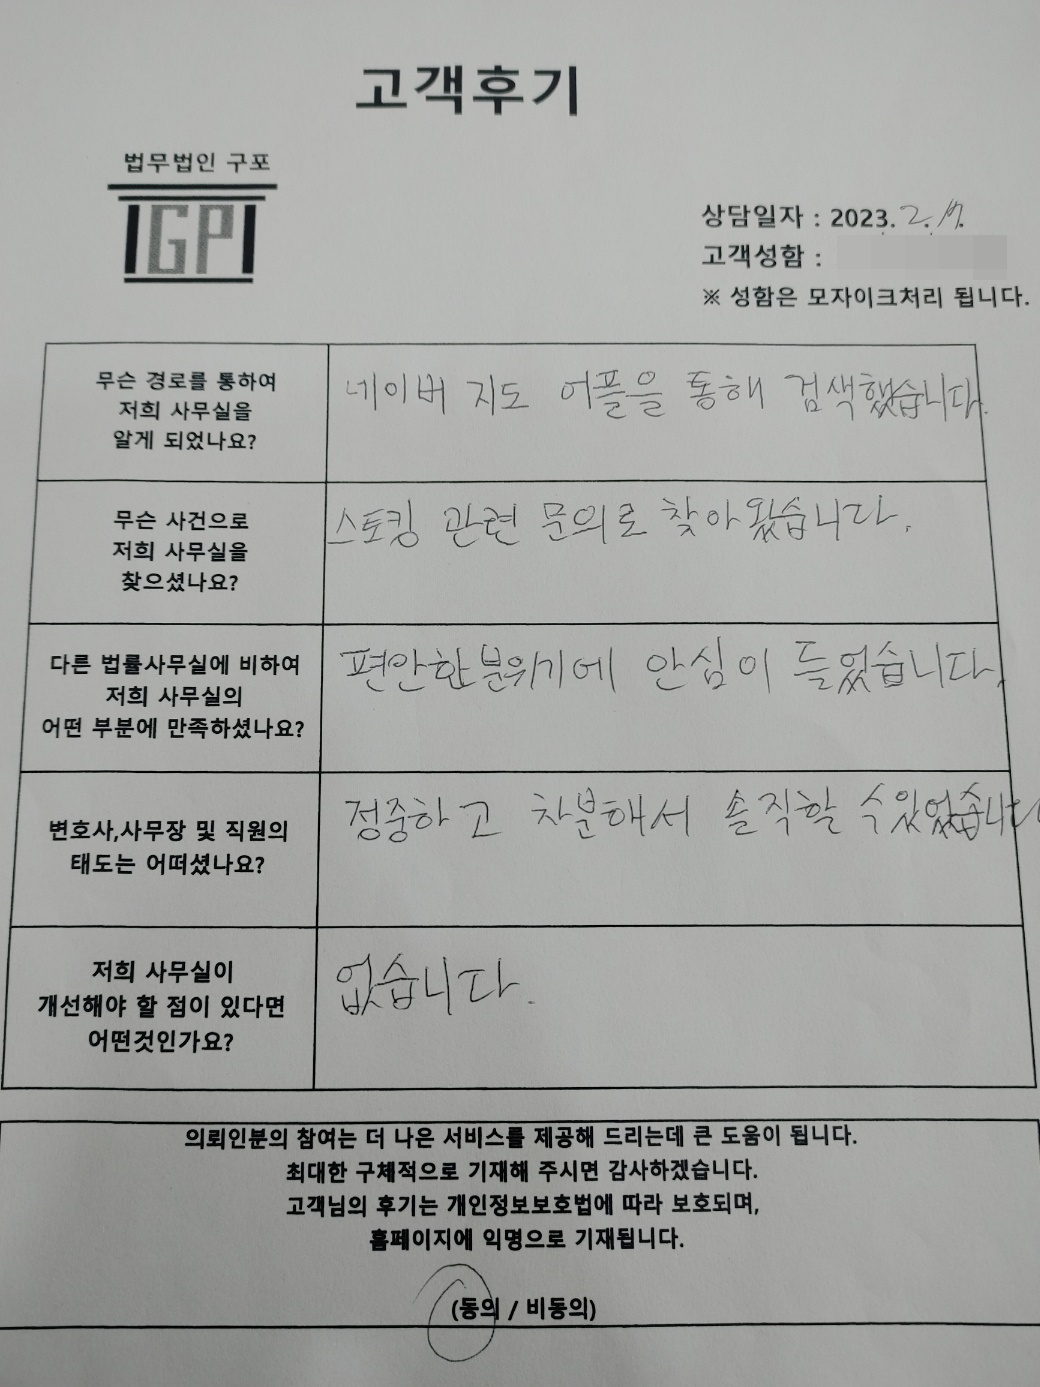 고객후기
법무법인 구포
IGPI
상담일자 : 2023. 2. 17.
고객성함 :
※ 성함은 모자이크처리 됩니다.
무슨 경로를 통하여
저희 사무실을
알게 되었나요?
네이버 지도 어플을 통해 검색했습니다.
무슨 사건으로
저희 사무실을
찾으셨나요?
스토킹 관련 문의로 찾아왔습니다.
다른 법률사무실에 비하여
저희 사무실의
어떤 부분에 만족하셨나요?
편안한분위기에 안심이 들었습니다.
변호사,사무장 및 직원의
태도는 어떠셨나요?
정중하고 차분해서 솔직할 수있었습니다
저희 사무실이
개선해야 할 점이 있다면
어떤것인가요?
없습니다.
의뢰인분의 참여는 더 나은 서비스를 제공해 드리는데 큰 도움이 됩니다.
최대한 구체적으로 기재해 주시면 감사하겠습니다.
고객님의 후기는 개인정보보호법에 따라 보호되며,
홈페이지에 익명으로 기재됩니다.
(동의 / 비동의)